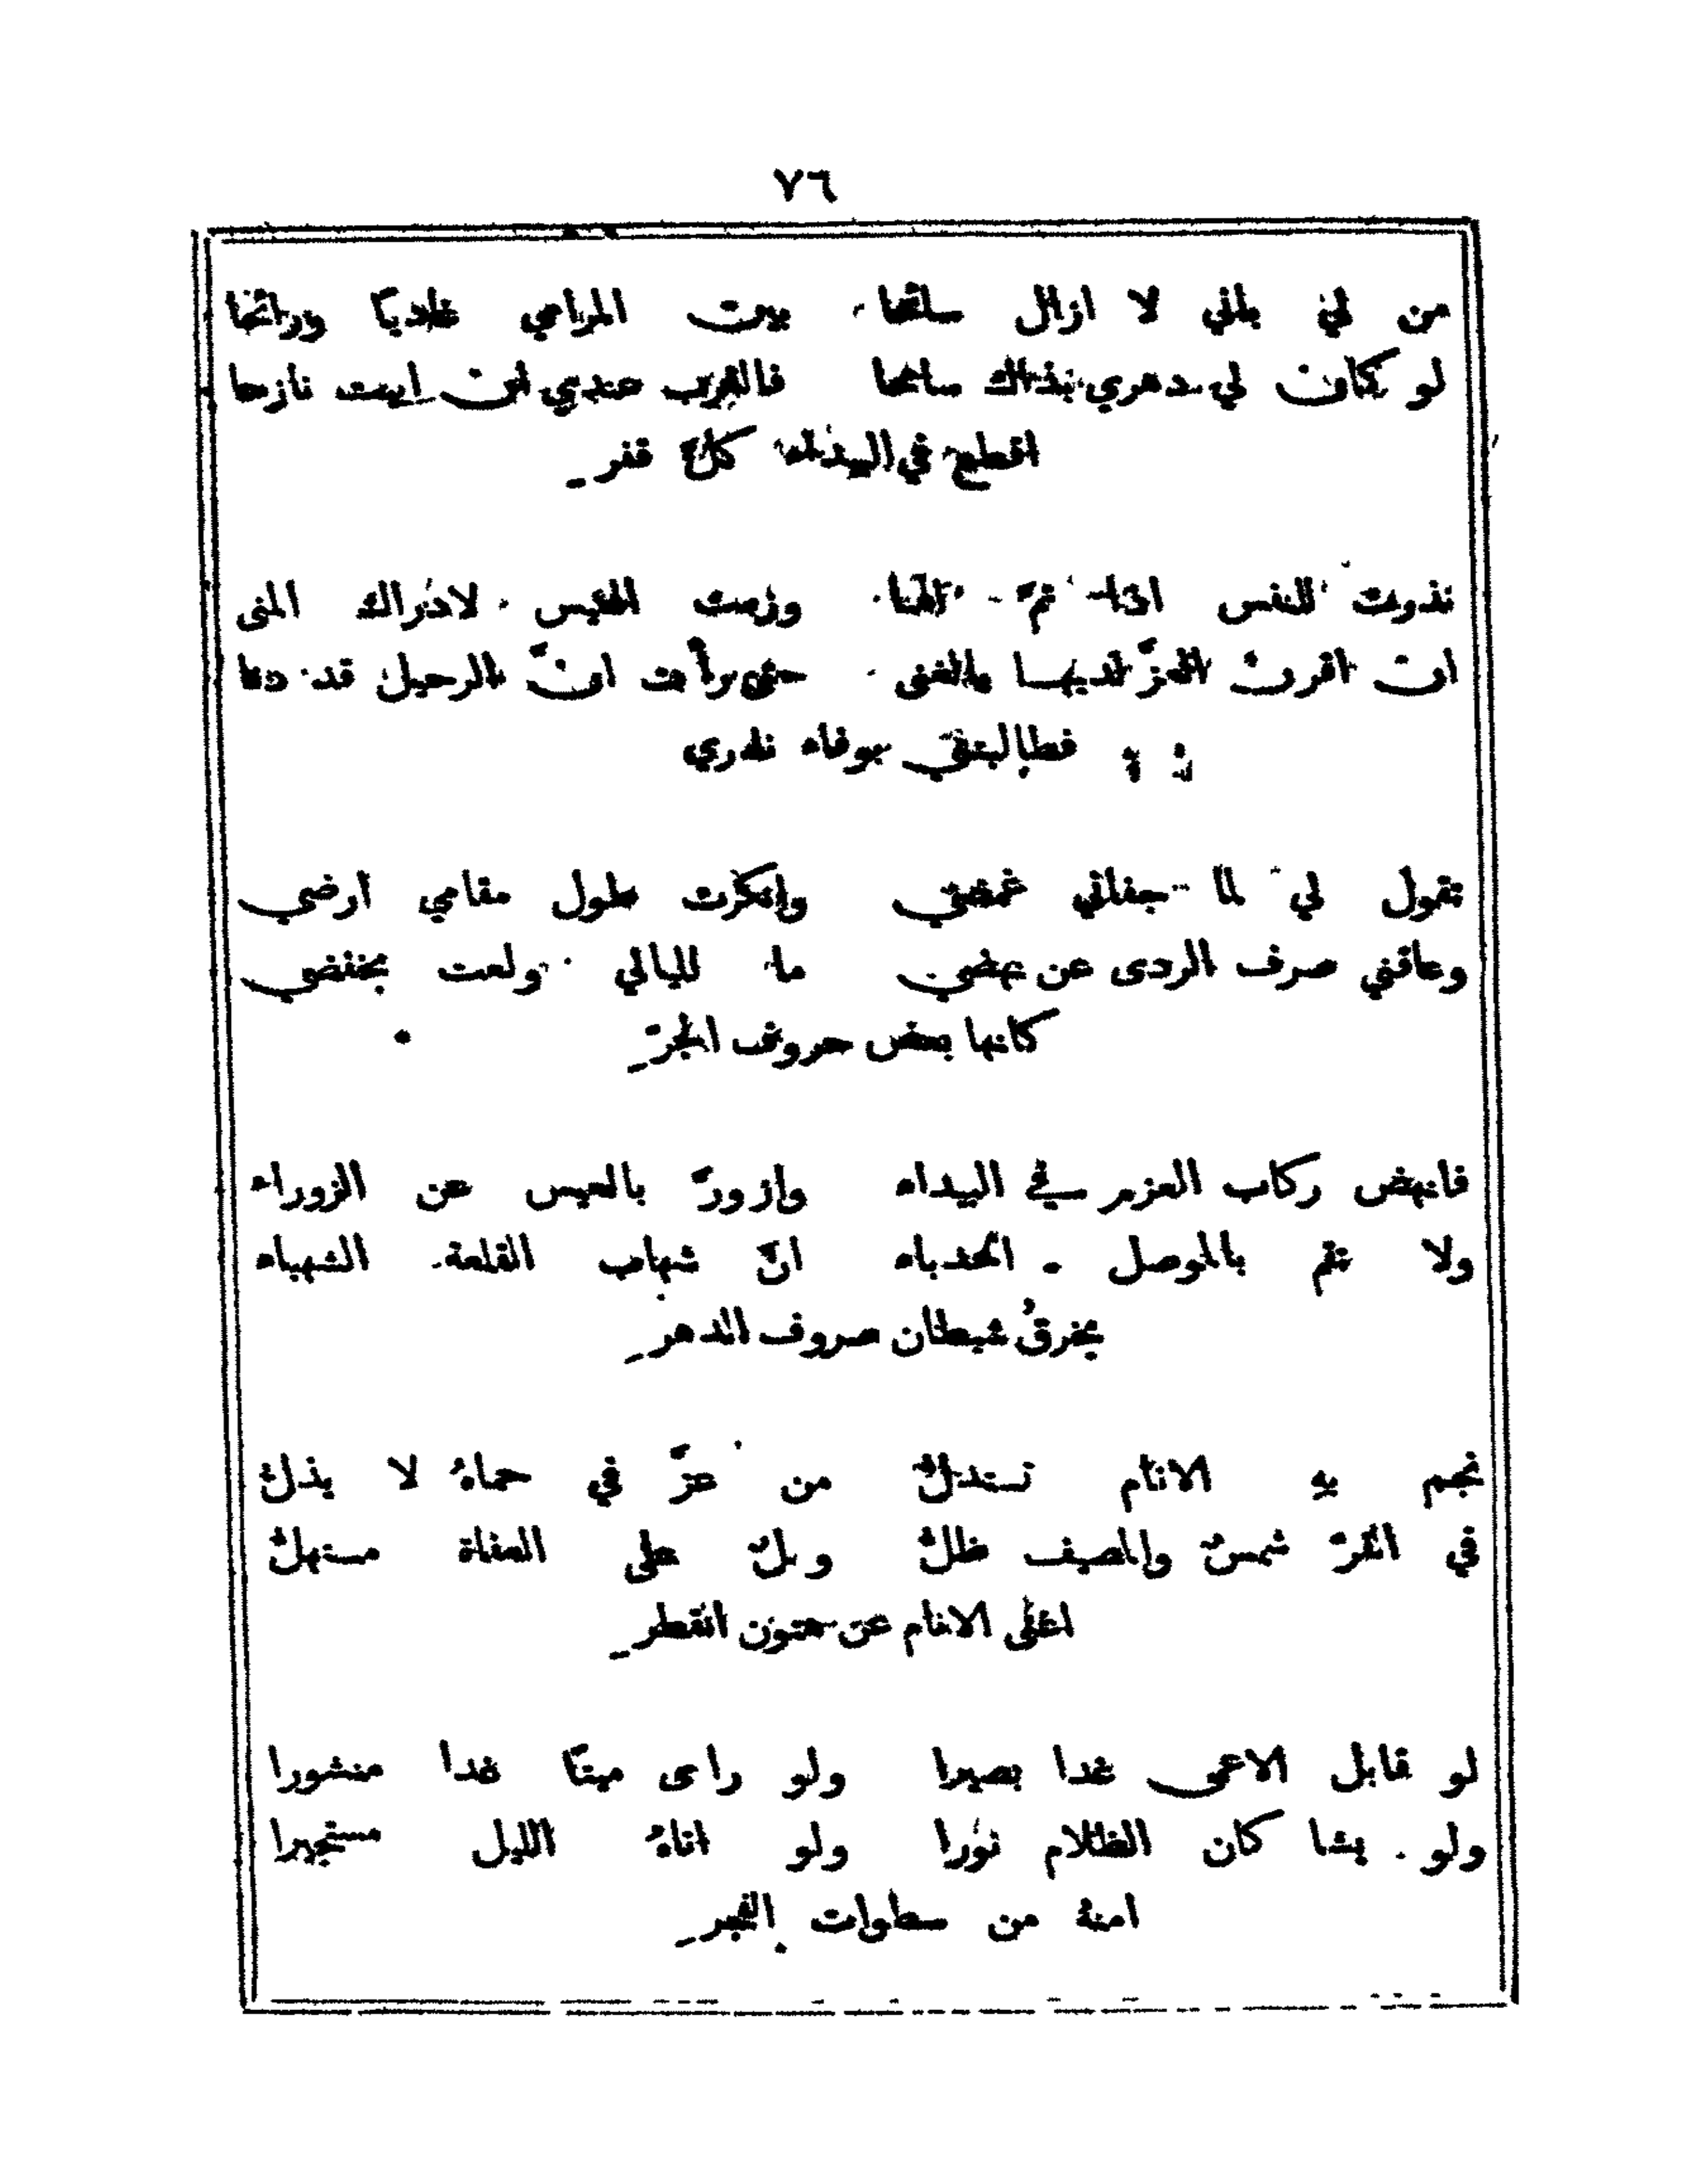 ٧٦
من لي باني لا ازال سائحا بين المرامي غاديًا ورائحا
لو كان لي دهري بذاك سامحا فالقرب عندي ان ابيت نازحا
اقطع في البيداء كلَّ قفرِ
نذرت للنفس اذا تمّ الهنا وزمت العيس لادراك المنى
ان اقرن العزّ لديها والغنى حتى رأيت انّ الرحيل قد دنا
فطالبتني بوفاء نذري
تقول لي لما جفاني غمضي وانكرت طول مقامي ارضي
وعاقني صرف الردى عن نهضي ما لليالي ولعت بخفضي
كانها بعض حروف الجرّ
فانهض ركاب العزم في البيداء وازورّ بالعيس عن الزوراء
ولا تقم بالموصل الحدباء انّ شهاب القلعة الشهباء
يخرقُ شيطان صروف الدهرِ
نجم به الانام تستدلُّ من عزّ في حماهُ لا يذلُّ
في القرّ شمسٌ والمصيف ظلُّ وبلٌ على العفاة مستهلُّ
اغنى الانام عن هتون القطرِ
لو قابل الاعمى غدا بصيرا ولو راى ميتًا غدا منشورا
ولو يشا كان الظلام نورا ولو اتاهُ الليل مستجيرا
امنهُ من سطوات الفجرِ